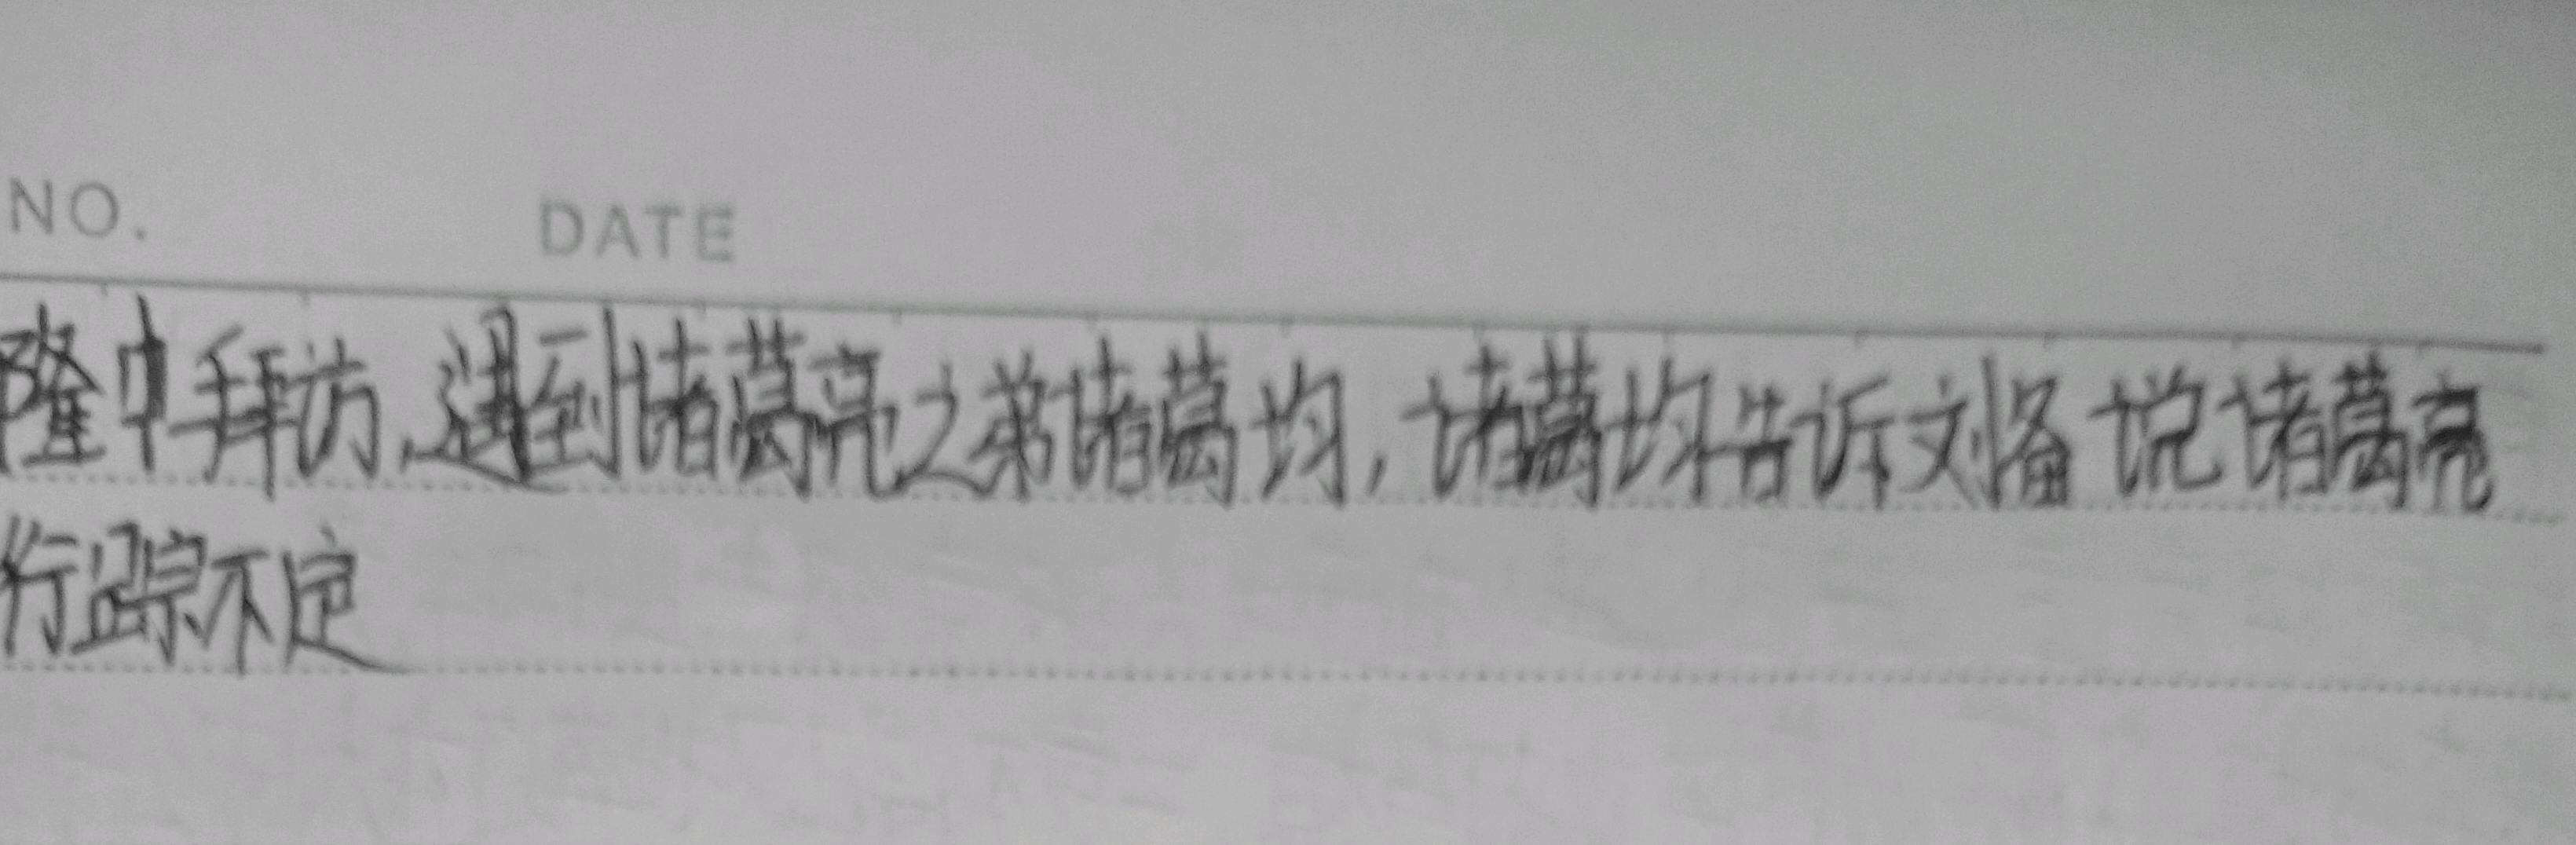 NO. DATE
隆中拜访,遇到诸葛亮之弟诸葛均,诸葛均告诉刘备说诸葛亮
行踪不定